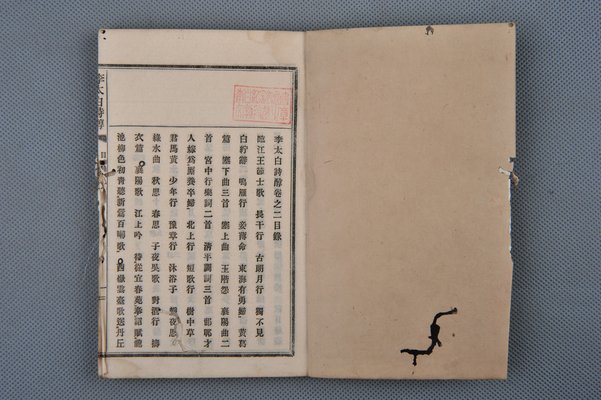 李太白詩醇卷之二目錄
臨江王節士歌 長干行 古朗月行 獨不見
白紵辭 鳴雁行 妾薄命 東海有勇婦 黃葛
篇 塞下曲三首 塞上曲 玉階怨 襄陽曲二
首 宮中行樂詞二首 清平調詞三首 邯鄲才
人嫁爲廝養卒婦 北上行 短歌行 樹中草
君馬黃 少年行 豫章行 沐浴子 靜夜思
淥水曲 秋思 春思 子夜吳歌 對酒行 擣
衣篇 襄陽歌 江上吟 侍從宜春苑奉詔賦龍
池柳色初青聽新鶯百囀歌 西嶽雲臺歌送丹丘
李太白詩醇